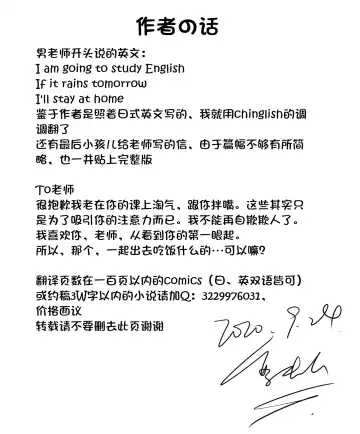 作者の话
男老师开头说的英文：
I am going to study English
If it rains tomorrow
I'll stay at home
鉴于作者是照着日式英文写的，我就用Chinglish的调
调翻了
还有最后小孩儿给老师写的信，由于篇幅不够有所简
略，也一并贴上完整版
To老师
很抱歉我老在你的课上淘气，跟你拌嘴。这些其实只
是为了吸引你的注意力而已。我不能再自欺欺人了。
我喜欢你，老师，从看到你的第一眼起。
所以，那个，一起出去吃饭什么的…可以嘛？
翻译页数在一百页以内的comics（日、英双语皆可）
或约稿3W字以内的小说请加Q：3229976031，
价格西议
转载请不要删去此页谢谢
2020.9.24